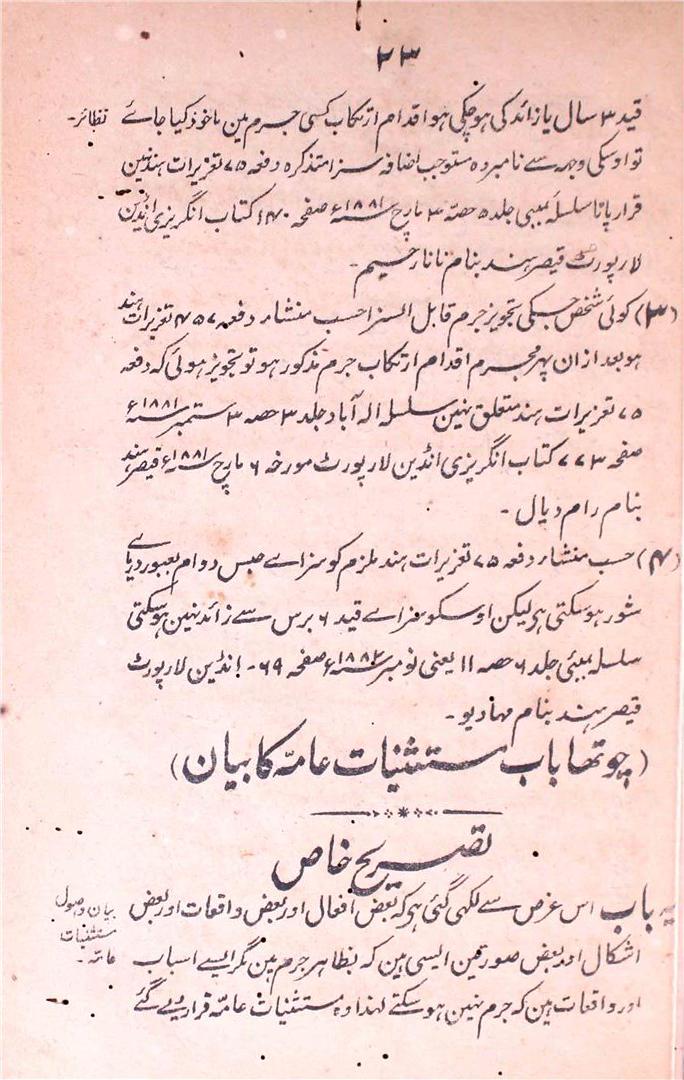 ۲۳
قید ۳ سال یا زائد کی ہو چکی ہو اقدام ارتکاب کسی جرم مین ماخوذ کیا جائے
نظائر۔
تو اوسکی وجہ سے نامبردہ مستوجب اضافہ سزا متذکرہ دفعہ ۷۵ تعزیرات ہند نہین
قرار پاتا سلسلہ بمبی جلد ۵ حصہ ۳ مارچ سنہ ۱۸۸۱ء صفحہ ۱۴۰ کتاب انگریزی انڈین
لا رپورٹ قیصر ہند بنام نانا رحیم۔
(۳) کوئی شخص جسکی تجویز جرم قابل السزا حسب منشاء دفعہ ۴۵۷ تعزیرات ہند
ہو بعد ازان پھر مجرم اقدام ارتکاب جرم مذکور ہو تو تجویز ہوئی کہ دفعہ
۷۵ تعزیرات ہند متعلق نہین سلسلہ الہ آباد جلد ۳ حصہ ۳ ستمبر سنہ ۱۸۸۱ء
صفحہ ۷۷۳ کتاب انگریزی انڈین لا رپورٹ مورخہ ۶ مارچ سنہ ۱۸۸۱ء قیصر ہند
بنام رام دیال۔
(۴) حسب منشاء دفعہ ۷۵ تعزیرات ہند ملزم کو سزاے حبس دوام بعبور دریاے
شور ہو سکتی ہی لیکن اوسکو سزاے قید ۶ برس سے زائد نہین ہو سکتی
سلسلہ بمبئی جلد ۶ حصہ ۱۱ یعنی نومبر سنہ ۱۸۸۲ء صفحہ ۶۹۔ انڈین لا رپورٹ
قیصر ہند بنام مہادیو۔
(چوتھا باب مستثنیات عامّہ کا بیان)
تصریح خاص
یہ باب اس غرض سے لکھی گئی ہی کہ بعض افعال اور بعض واقعات اور بعض
بیان واصول
مستثنیات
عامہ۔
اشکال اور بعض صورتین ایسی ہین کہ بظاہر جرم ہین مگر ایسے اسباب
اور واقعات ہین کہ جرم نہین ہو سکتے لہذا وہ مستثنیات عامّہ قرار دیے گئے